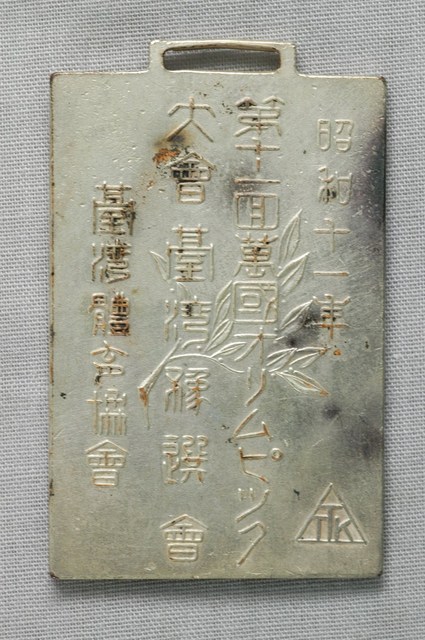 昭和十一年
第十一回萬國オリムピック
大會臺灣豫選會
臺灣體育協會
TTK